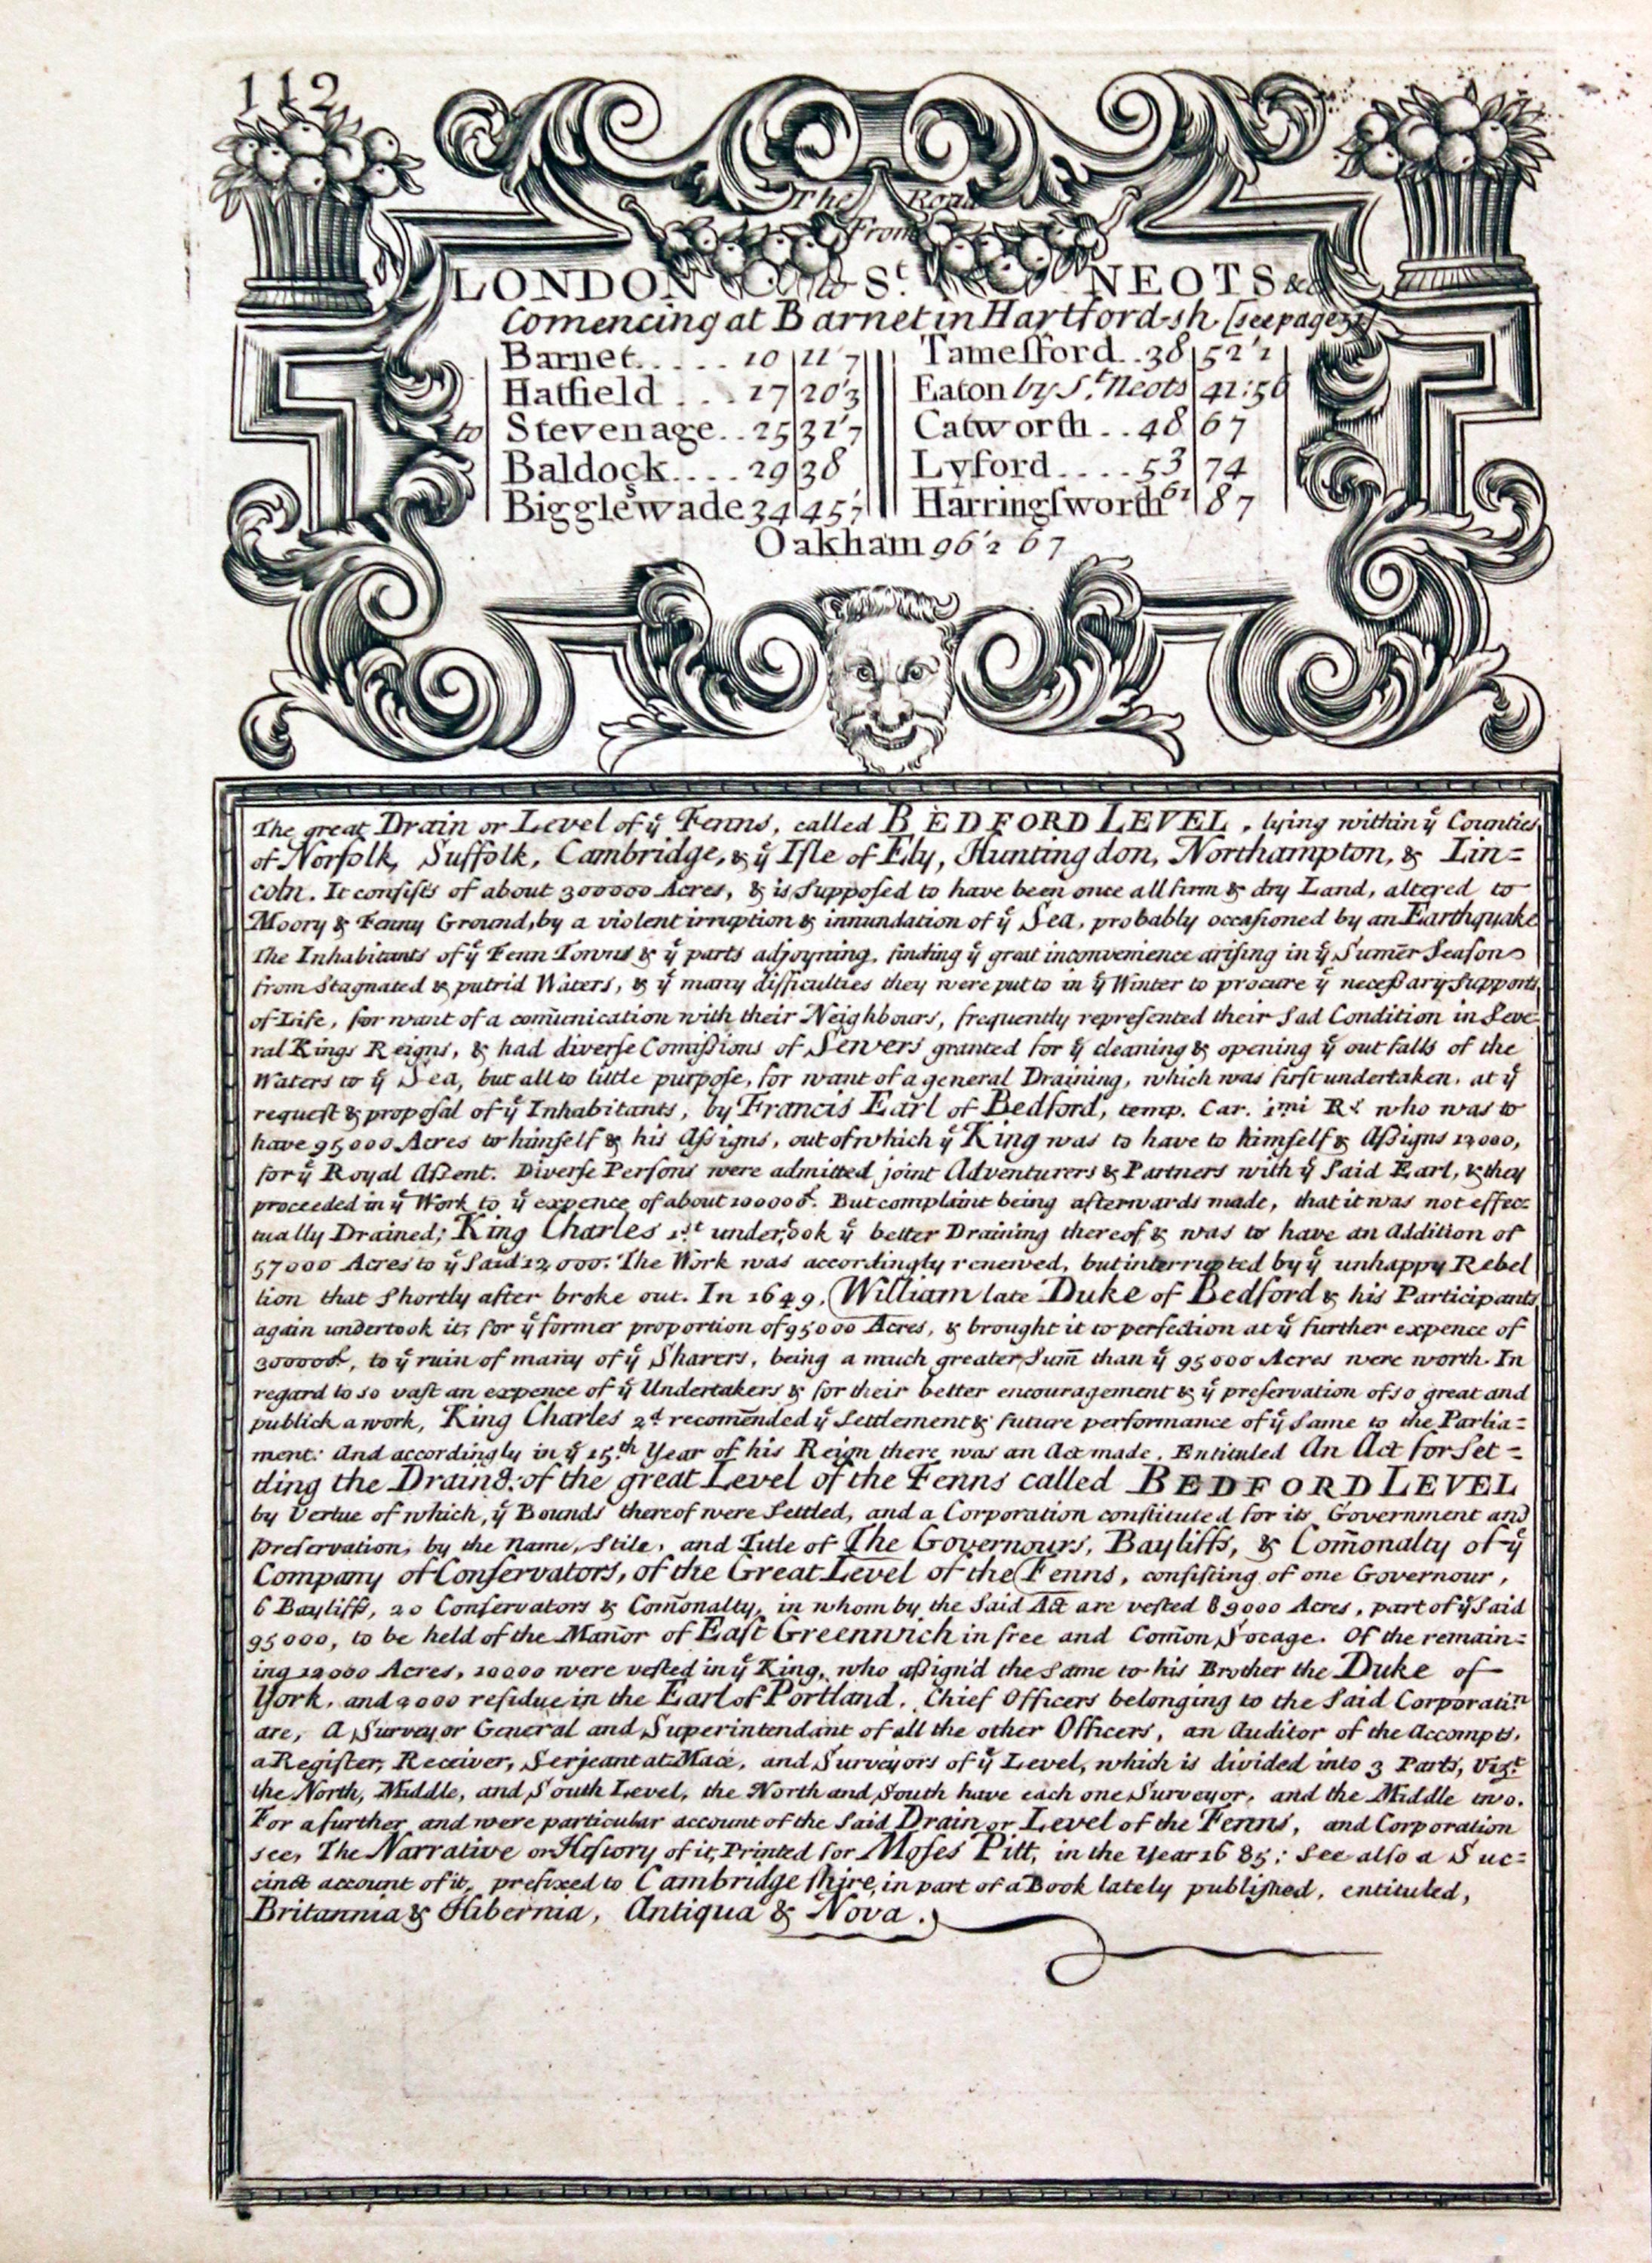 112
The Road
From
LONDON to St. NEOTS &c
Comencing at Barnet in Hartford-sh. [see page
Barnet..... 10 | 11'7 || Tameſford..38 | 52'1
Hatfield ... 17 | 20'3 || Eaton by St. Neots | 41:56
to Stevenage..25 | 31'7 || Catworth..48 | 67
Baldock....29 | 38 || Lyford....53 | 74
Biggleswade 34 | 45'7 || Harringſworth 61 | 87
Oakham 96'2 67
The great Drain or Level of ẙ Fenns, called BEDFORD LEVEL, lying within ẙ Counties
of Norfolk, Suffolk, Cambridge, & ẙ Iſle of Ely, Huntingdon, Northampton, & Lin=
coln. It conſiſts of about 300000 Acres, & is Suppoſed to have been once all firm & dry Land, altered to
Moory & Fenny Ground, by a violent irruption & innundation of ẙ Sea, probably occaſioned by an Earthquake
The Inhabitants of ẙ Fenn Towns & ẙ parts adjoyning, finding ẙ great inconvenience ariſing in ẙ Sum̄er Seaſons
from Stagnated & putrid Waters, & ẙ many difficulties they were put to in ẙ Winter to procure ẙ neceſsary Supports
of Life, for want of a com̄unication with their Neighbours, frequently repreſented their Sad Condition in Seve=
ral Kings Reigns, & had diverſe Com̄iſsions of Sewers granted for ẙ cleaning & opening ẙ out falls of the
Waters to ẙ Sea, but all to little purpoſe, for want of a general Draining, which was firſt undertaken, at ẙ
requeſt & propoſal of ẙ Inhabitants, by Francis Earl of Bedford, temp. Car. 1mi Rs. who was to
have 95000 Acres to himſelf & his Aſsigns, out of which ẙ King was to have to himſelf & Aſsigns 12000,
for ẙ Royal Aſsent. Diverſe Perſons were admitted joint Adventurers & Partners with ẙ Said Earl, & they
proceeded in ẙ Work to ẙ expence of about 100000£. But complaint being afterwards made, that it was not effec=
tually Drained; King Charles 1st. undertook ẙ better Draining thereof & was to have an Addition of
57000 Acres to ẙ Said 12000. The Work was accordingly renewed, but interrupted by ẙ unhappy Rebel
lion that Shortly after broke out. In 1649, William late Duke of Bedford & his Participants
again undertook it, for ẙ former proportion of 95000 Acres, & brought it to perfection at ẙ further expence of
300000£, to ẙ ruin of many of ẙ Sharers, being a much greater Sum̄ than ẙ 95000 Acres were worth. In
regard to so vaſt an expence of ẙ Undertakers & for their better encouragement & ẙ preſervation of so great and
publick a work, King Charles 2d recom̄ended ẙ Settlement & future performance of ẙ Same to the Parlia=
ment: And accordingly in ẙ 15th. Year of his Reign there was an Act made, Entituled An Act for Set=
ding the Draing. of the great Level of the Fenns called BEDFORD LEVEL
by Vertue of which, ẙ Bounds thereof were Settled, and a Corporation conſtituted for its Government and
Preſervation, by the Name, Stile, and Title of The Governours, Bayliffs, & Com̄onalty of ẙ
Company of Conſervators, of the Great Level of the Fenns, conſiſting of one Governour,
6 Bayliffs, 20 Conſervators & Com̄onalty, in whom by the Said Act are veſted 89000 Acres, part of ẙ Said
95000, to be held of the Man̄or of Eaſt Greenwich in free and Com̄on Socage. Of the remain=
ing 12000 Acres, 10000 were veſted in ẙ King, who aſsign'd the Same to his Brother the Duke of
York, and 2000 reſidue in the Earl of Portland. Chief Officers belonging to the Said Corporatin
are, A Surveyor General and Superintendant of all the other Officers, an Auditor of the Accompts,
a Regiſter, Receiver, Serjeant at Mace, and Surveyors of ẙ Level, which is divided into 3 Parts, Vizt.
the North, Middle, and South Level, the North and South have each one Surveyor, and the Middle two.
For a further and were particular account of the Said Drain or Level of the Fenns, and Corporation
see, The Narrative or Hiſtory of it, Printed for Moſes Pitt, in the Year 1685; See also a Suc=
cinct account of it, prefixed to Cambridgeſhire, in part of a Book lately publiſhed, entituled,
Britannia & Hibernia, Antiqua & Nova.